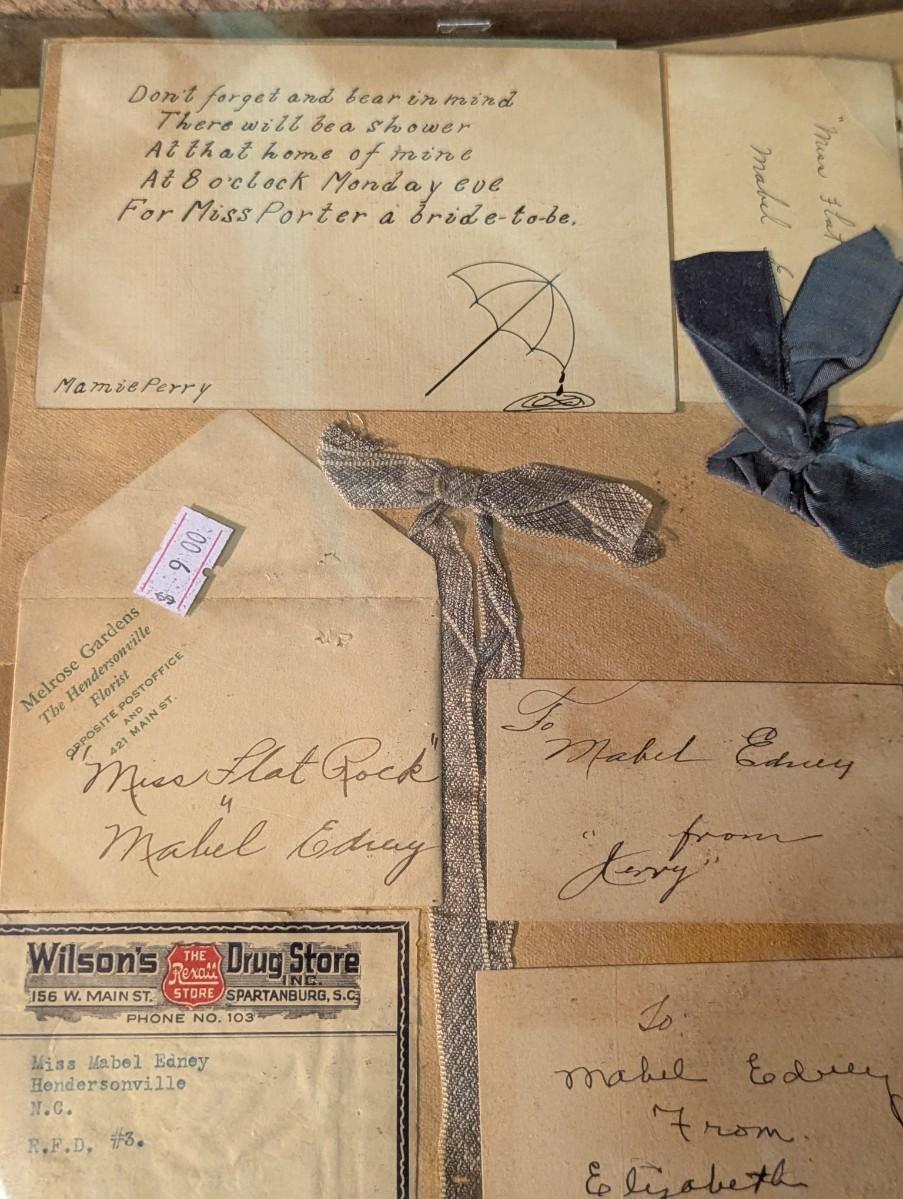 Don't forget and bear in mind
There will be a shower
At that home of mine
At 8 o'clock Monday eve
For Miss Porter a bride-to-be.
Mamie Perry
"Miss Flat
Mabel
$ 9.00
Melrose Gardens
The Hendersonville
Florist
OPPOSITE POSTOFFICE
AND
421 MAIN ST.
"Miss Flat Rock"
"
Mabel Edney
To
Mabel Edney
from
"Jerry"
Wilson's THE Rexall STORE Drug Store
INC.
156 W. MAIN ST. SPARTANBURG, S.C.
PHONE NO. 103
Miss Mabel Edney
Hendersonville
N.C.
R.F.D. #3.
To
Mabel Edney
From.
Elizabeth